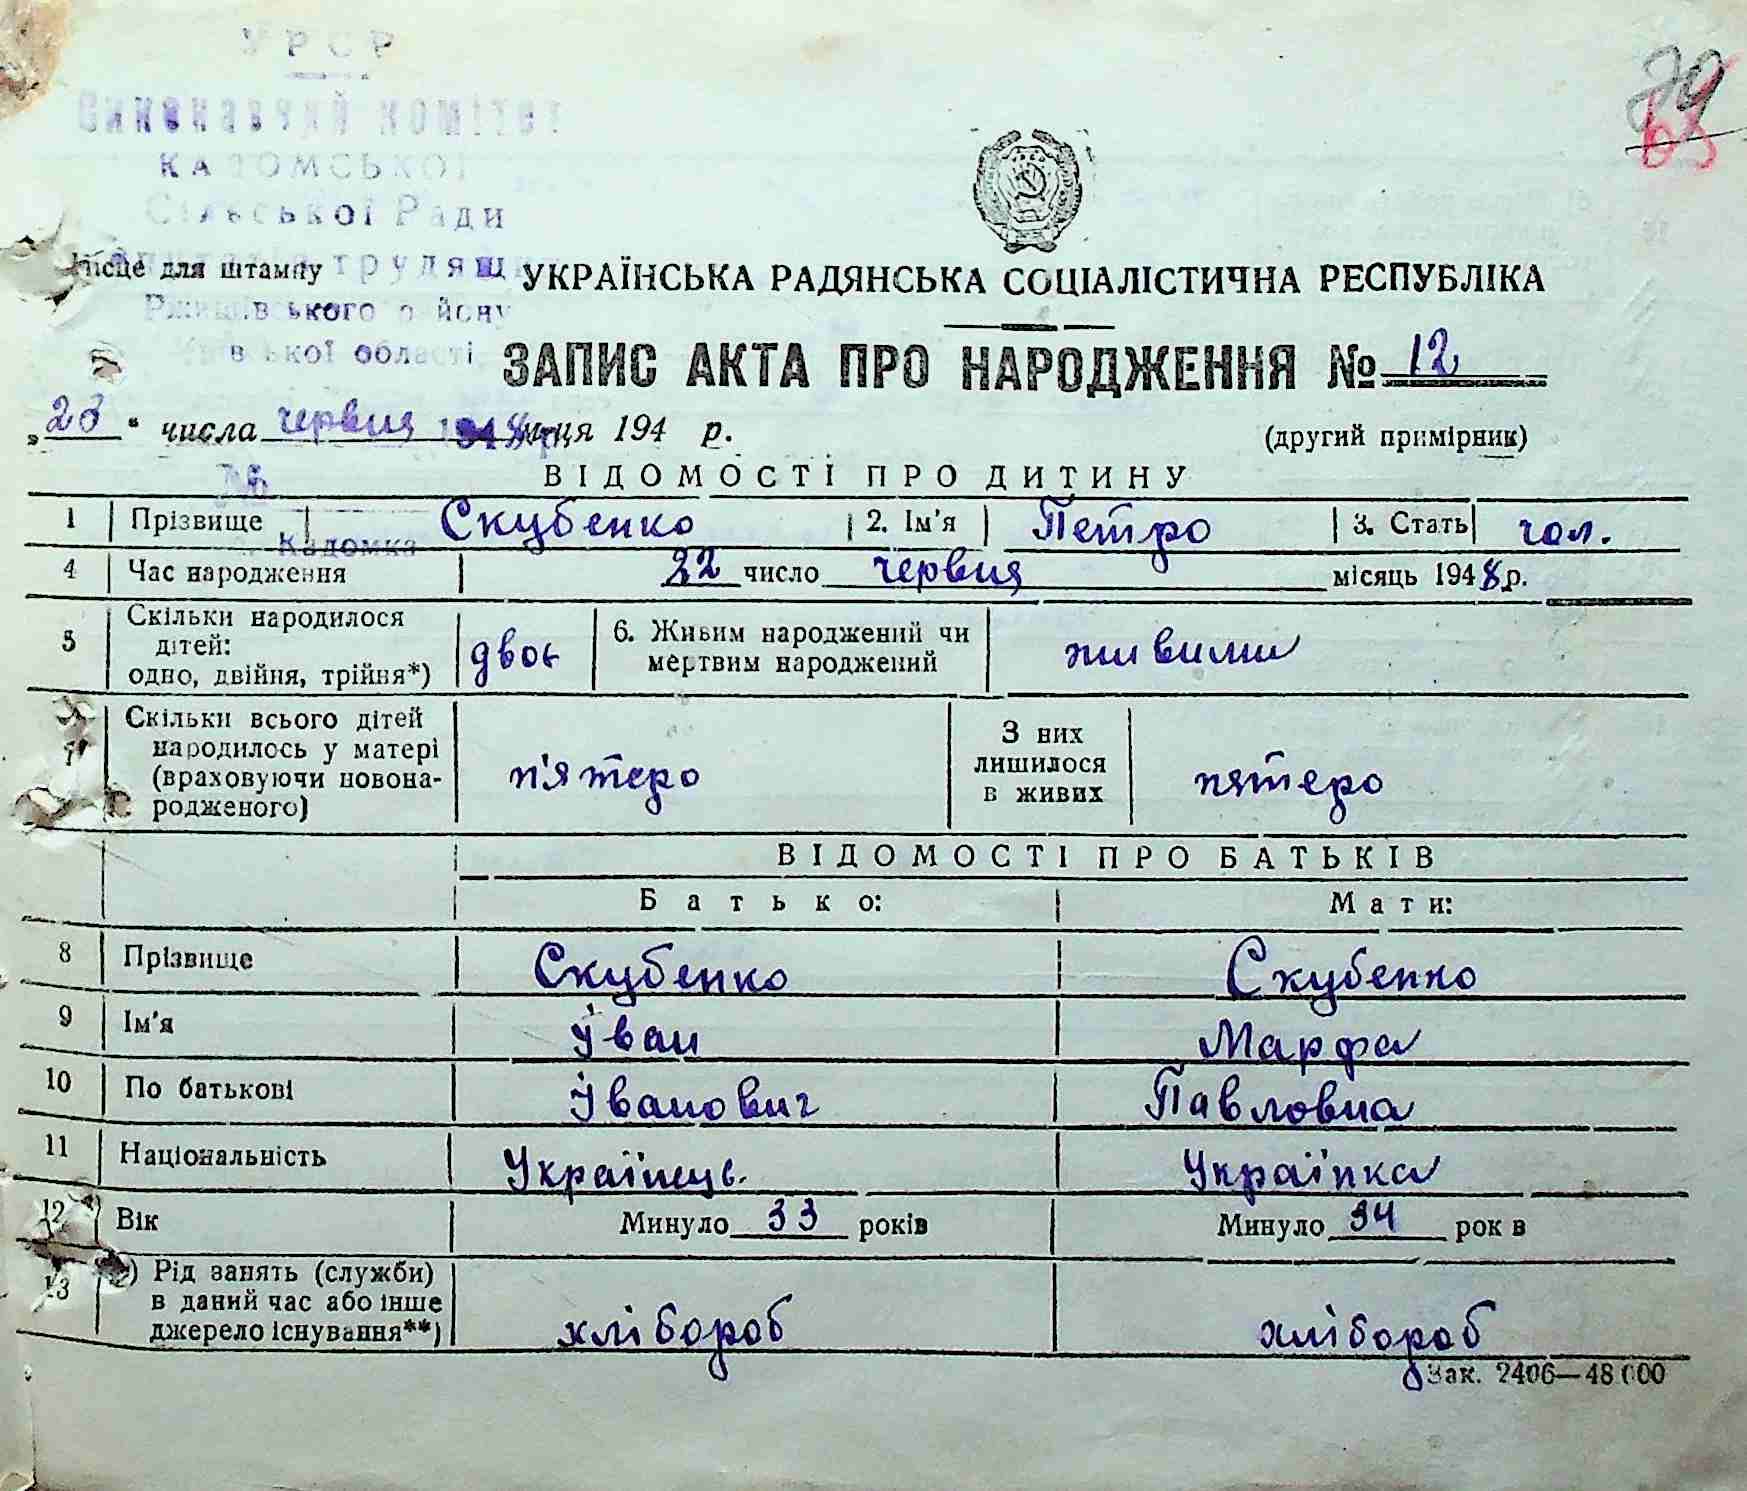 УРСР
Виконавчий комітет
КАДОМСЬКОЇ
Сільської Ради
трудящ
Місце для штампу
Ржищівського району
области
79
65
УКРАЇНСЬКА РАДЯНСЬКА СОЦІАЛІСТИЧНА РЕСПУБЛІКА
ЗАПИС АКТА ПРО НАРОДЖЕННЯ № 12
„23" числа червня місяця 194 р.
(другий примірник)
№
ВІДОМОСТІ ПРО ДИТИНУ
1 Прізвище Скубенко 2. Ім'я Петро 3. Стать чол.
с. Кадомка
4 Час народження 22 число червня місяць 1948 р.
5 Скільки народилося дітей: одно, двійня, трійня*) двоє 6. Живим народжений чи мертвим народжений живими
7 Скільки всього дітей народилось у матері (враховуючи новонародженого) п'ятеро З них лишилося в живих пятеро
ВІДОМОСТІ ПРО БАТЬКІВ
Батько: Мати:
8 Прізвище Скубенко Скубенко
9 Ім'я Іван Марфа
10 По батькові Іванович Павловна
11 Національність Українець. Українка
12 Вік Минуло 33 років Минуло 34 рок в
13 Рід занять (служби) в даний час або інше джерело існування**) хлібороб хлібороб
Зак. 2406—48 000